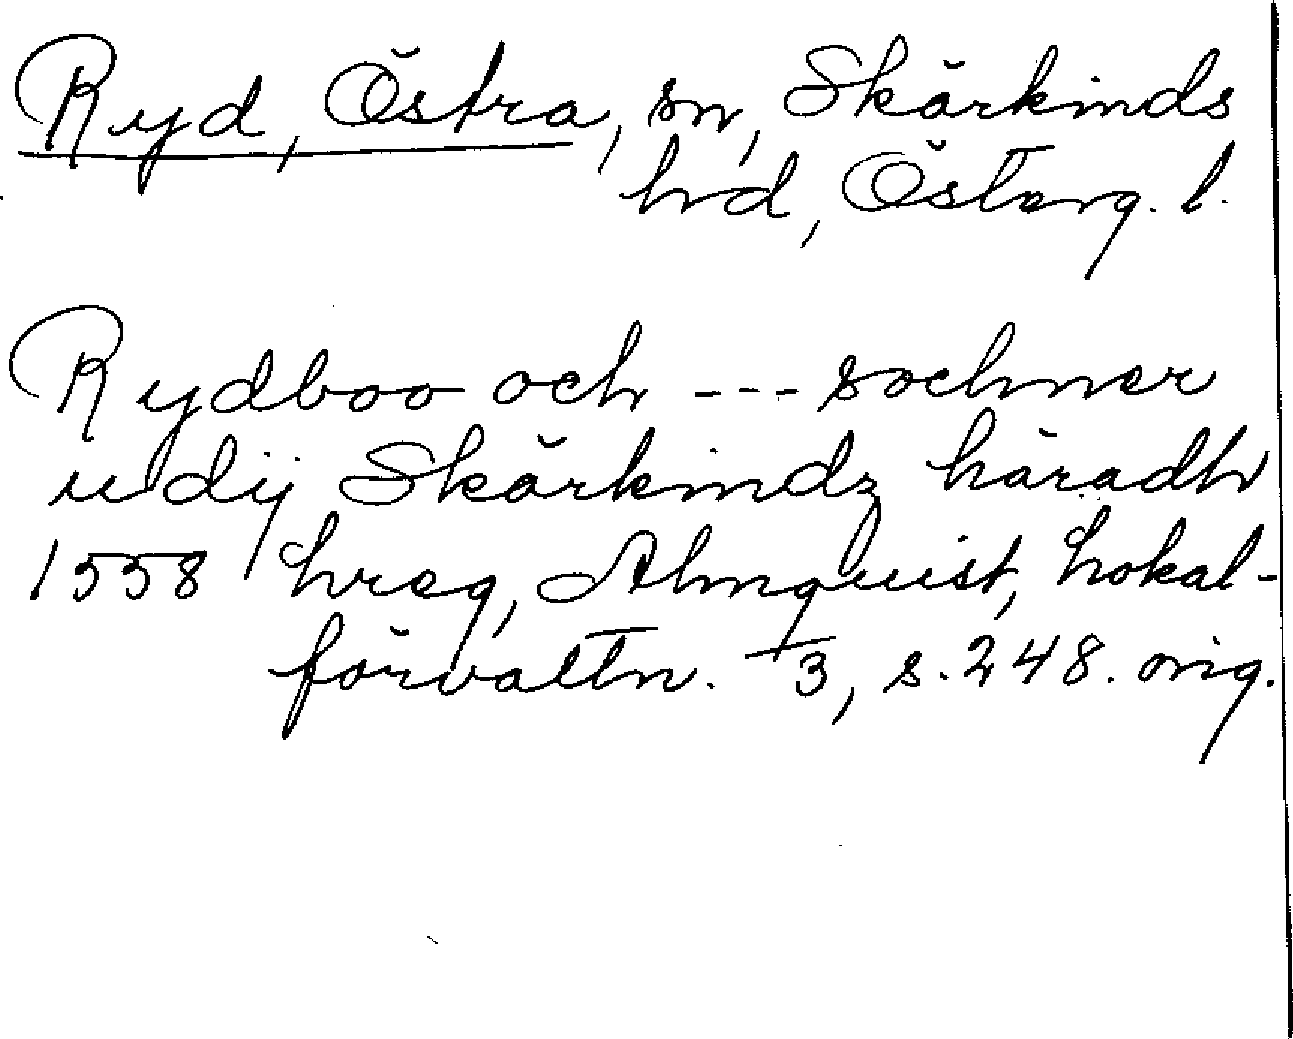 Ryd, Östra, sn, Skärkinds
hrd, Österg. l.
Rydboo och --- sochner
udij Skärkindz häradh
1558 hreg, Almquist, Lokal-
förvaltn. 3, s. 248. orig.